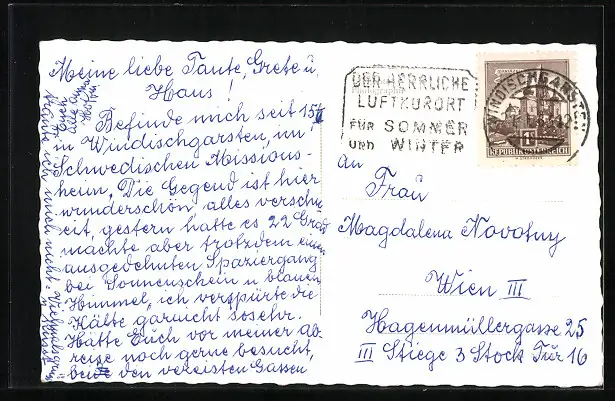 Meine liebe Tante, Grete u.
Hans!
Befinde mich seit 15/II
in Windischgarsten, im
Schwedischen Missions-
heim, Die Gegend ist hier
wunderschön alles verschn
eit, gestern hatte es 22 Grad
machte aber trotzdem einen
ausgedehnten Spaziergang
bei Sonnenschein u blauen
Himmel, ich verspürte die
Kälte garnicht so sehr.
Hätte Euch vor meiner ab
reise noch gerne besucht,
bei den vereisten Gassen
traute ich mich nicht. Vielmals grüßt
Euch
alle
DER HERRLICHE
LUFTKURORT
FÜR SOMMER
UND WINTER
WINDISCHGARSTEN
REPUBLIK ÖSTERREICH
An
Frau
Magdalena Novotny
Wien III
Hagenmüllergasse 25
III Stiege 3 Stock Tür 16